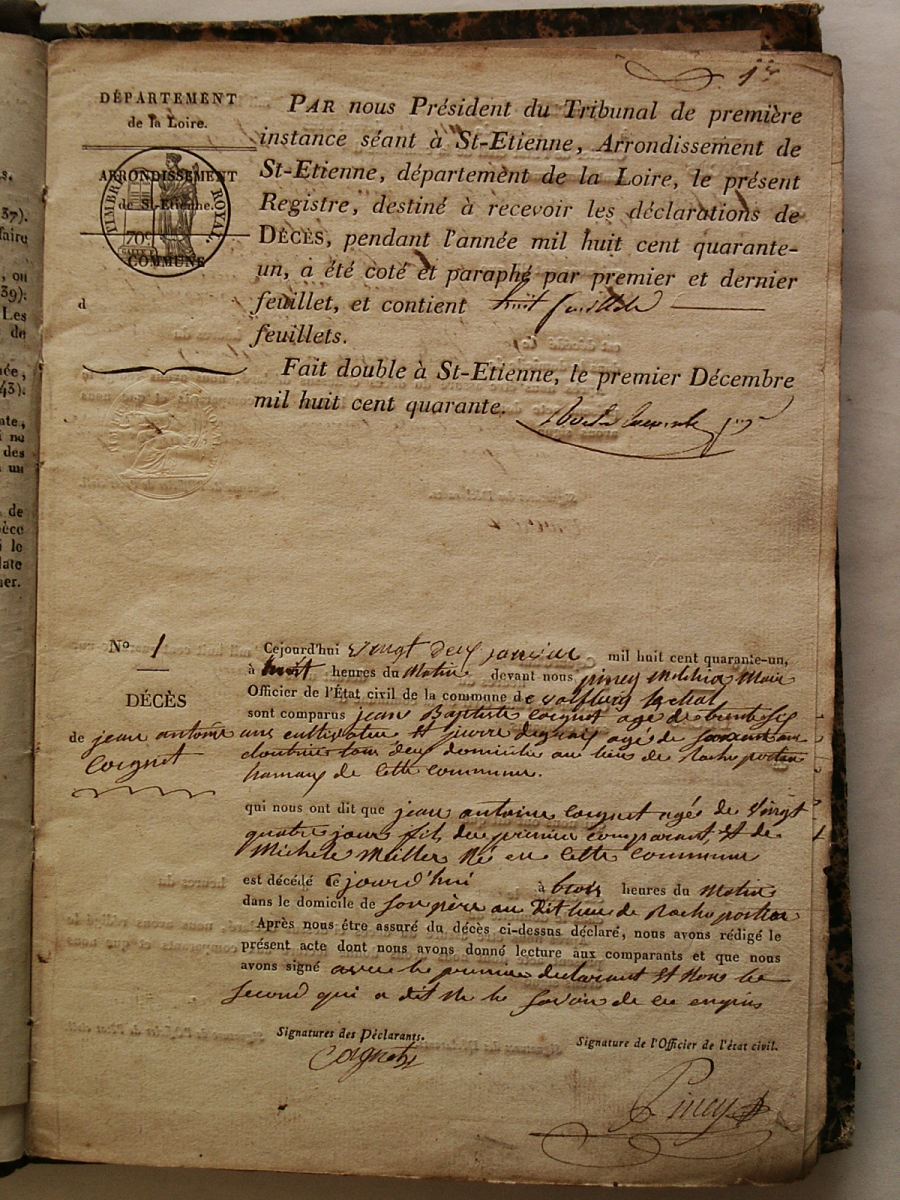 1er
DÉPARTEMENT
de la Loire.
ARRONDISSEMENT
de St-Etienne.
COMMUNE
d
TIMBRE ROYAL.
70c
PAR nous Président du Tribunal de première
instance séant à St-Etienne, Arrondissement de
St-Etienne, département de la Loire, le présent
Registre, destiné à recevoir les déclarations de
DÉCÈS, pendant l'année mil huit cent quarante-
un, a été coté et paraphé par premier et dernier
feuillet, et contient huit feuillets
feuillets.
Fait double à St-Etienne, le premier Décembre
mil huit cent quarante.
No 1
DÉCÈS
de jean antoine
Coignet
Cejourd'hui vingt deux janvier mil huit cent quarante-un,
à huit heures du Matin devant nous piney Maire
Officier de l'État civil de la commune de
sont comparus jean Baptiste Coignet agé de trente six
ans cultivateur et pierre agé de
cloutrier tous deux domicilié au lieu de Roche
de cette commune.
qui nous ont dit que jean antoine Coignet agé de vingt
quatre jours fils du premier comparant, et de
Michele Muller Né en cette commune
est décédé ce jourd'hui à trois heures du Matin
dans le domicile de son père au dit lieu de Roche
Après nous être assuré du décès ci-dessus déclaré, nous avons rédigé le
présent acte dont nous avons donné lecture aux comparants et que nous
avons signé avec le premier declarant et Non le
second qui a dit ne le savoir de ce enquis
Signatures des Déclarants.
Signature de l'Officier de l'état civil.
Coignet
Piney
37).
faire
, ou
39):
Les
de
43):
des
un
de
le